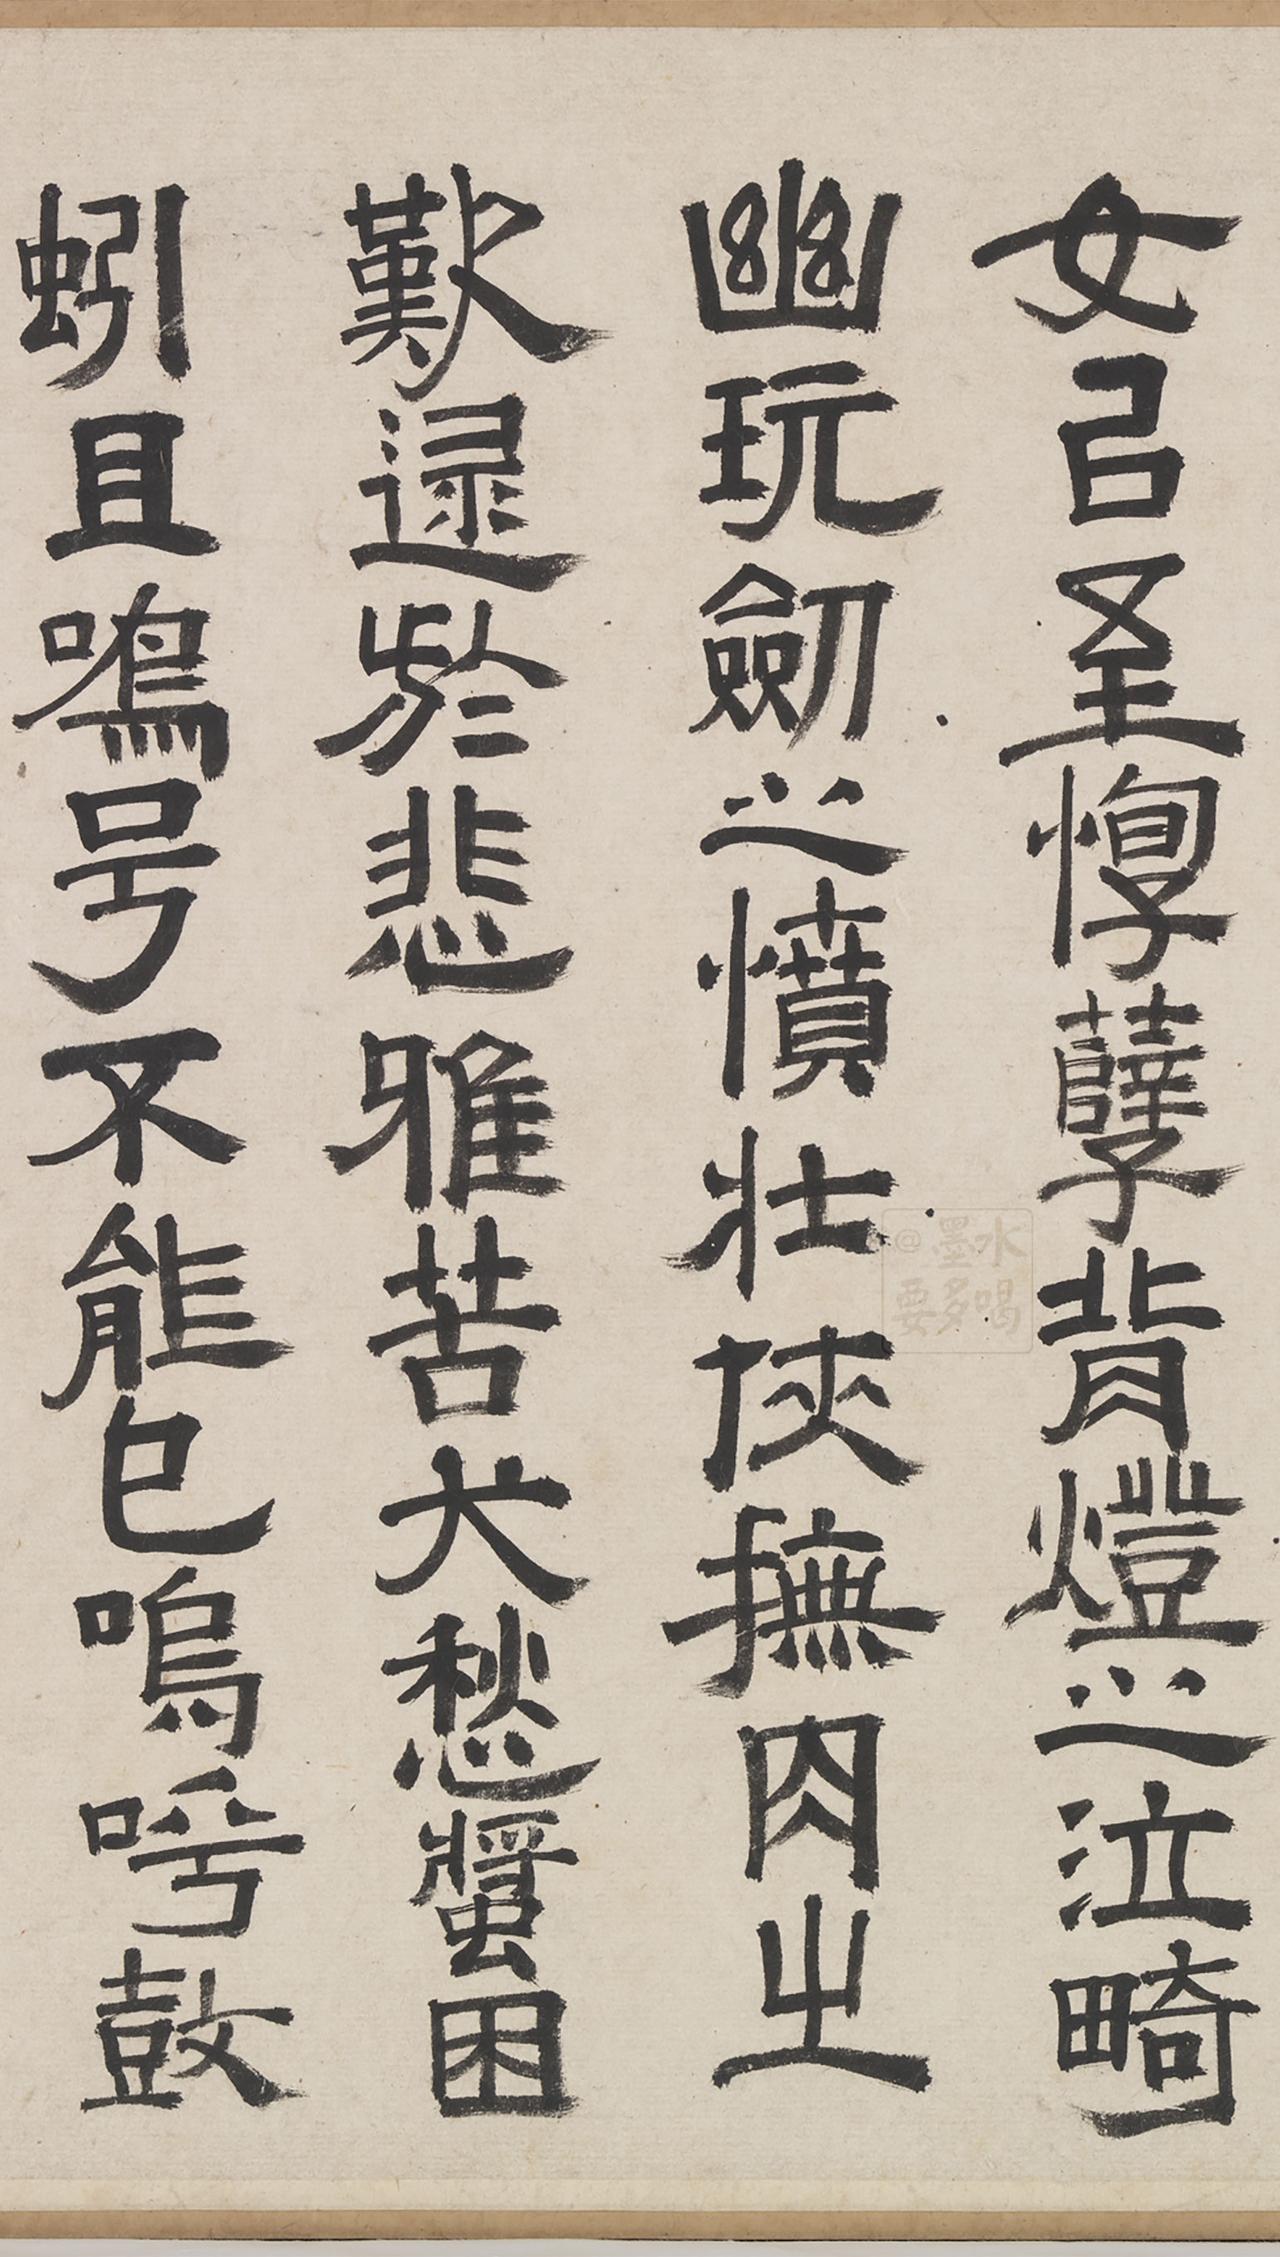 女㠯至惸孽背燈之泣畸
幽玩劒之憤壯俠撫肉之
歎逯於悲雅苦犬愁螿困
蚓且鳴号不能已嗚呼鼓
@墨水
要多喝